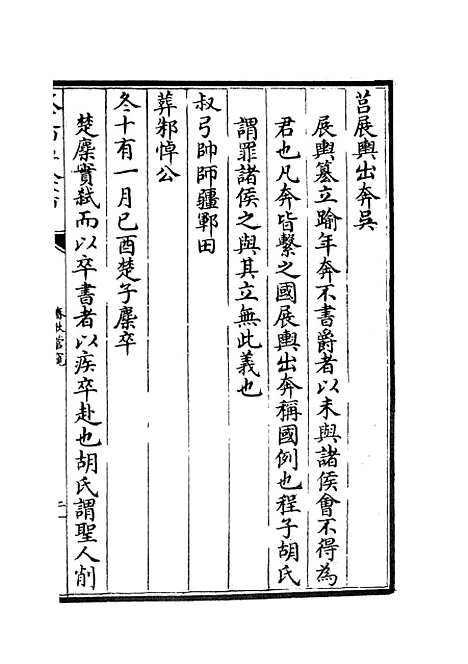 莒展輿出奔吳
展輿簒立踰年奔不書爵者以未與諸侯會不得為
君也凡奔皆繫之國展輿出奔稱國例也程子胡氏
謂罪諸侯之與其立無此義也
叔弓帥師疆鄆田
葬邾悼公
冬十有一月己酉楚子麇卒
楚麇實弑而以卒書者以疾卒赴也胡氏謂聖人削
春秋管窺